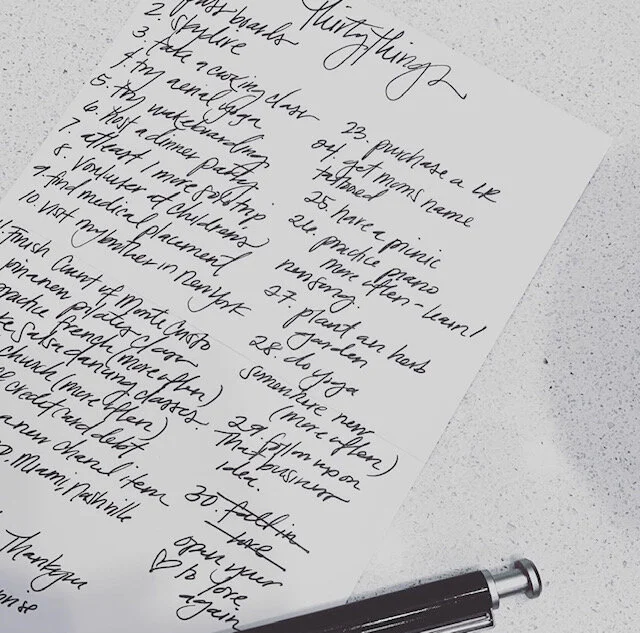 Thirty Things
pass boards
2. skydive
3. take a cooking class
4. try aerial yoga
5. try wakeboarding
6. host a dinner party
7. atleast 1 more solo trip
8. volunteer at childrens
9. find medical placement
10. visit my brother in New York
1. Finish Count of Monte Cristo
pilates class
practice French (more often)
salsa dancing classes
church (more often)
credit card debt
a new chanel item
Miami, Nashville
Thankyou
23. purchase a LR
24. get moms name
tattooed
25. have a picnic
26. practice piano
more often - learn 1
new song.
27. plant an herb
garden
28. do yoga
somewhere new
(more often)
29. follow up on
that business
idea.
30. fall in
love
open your
♡ to love
again